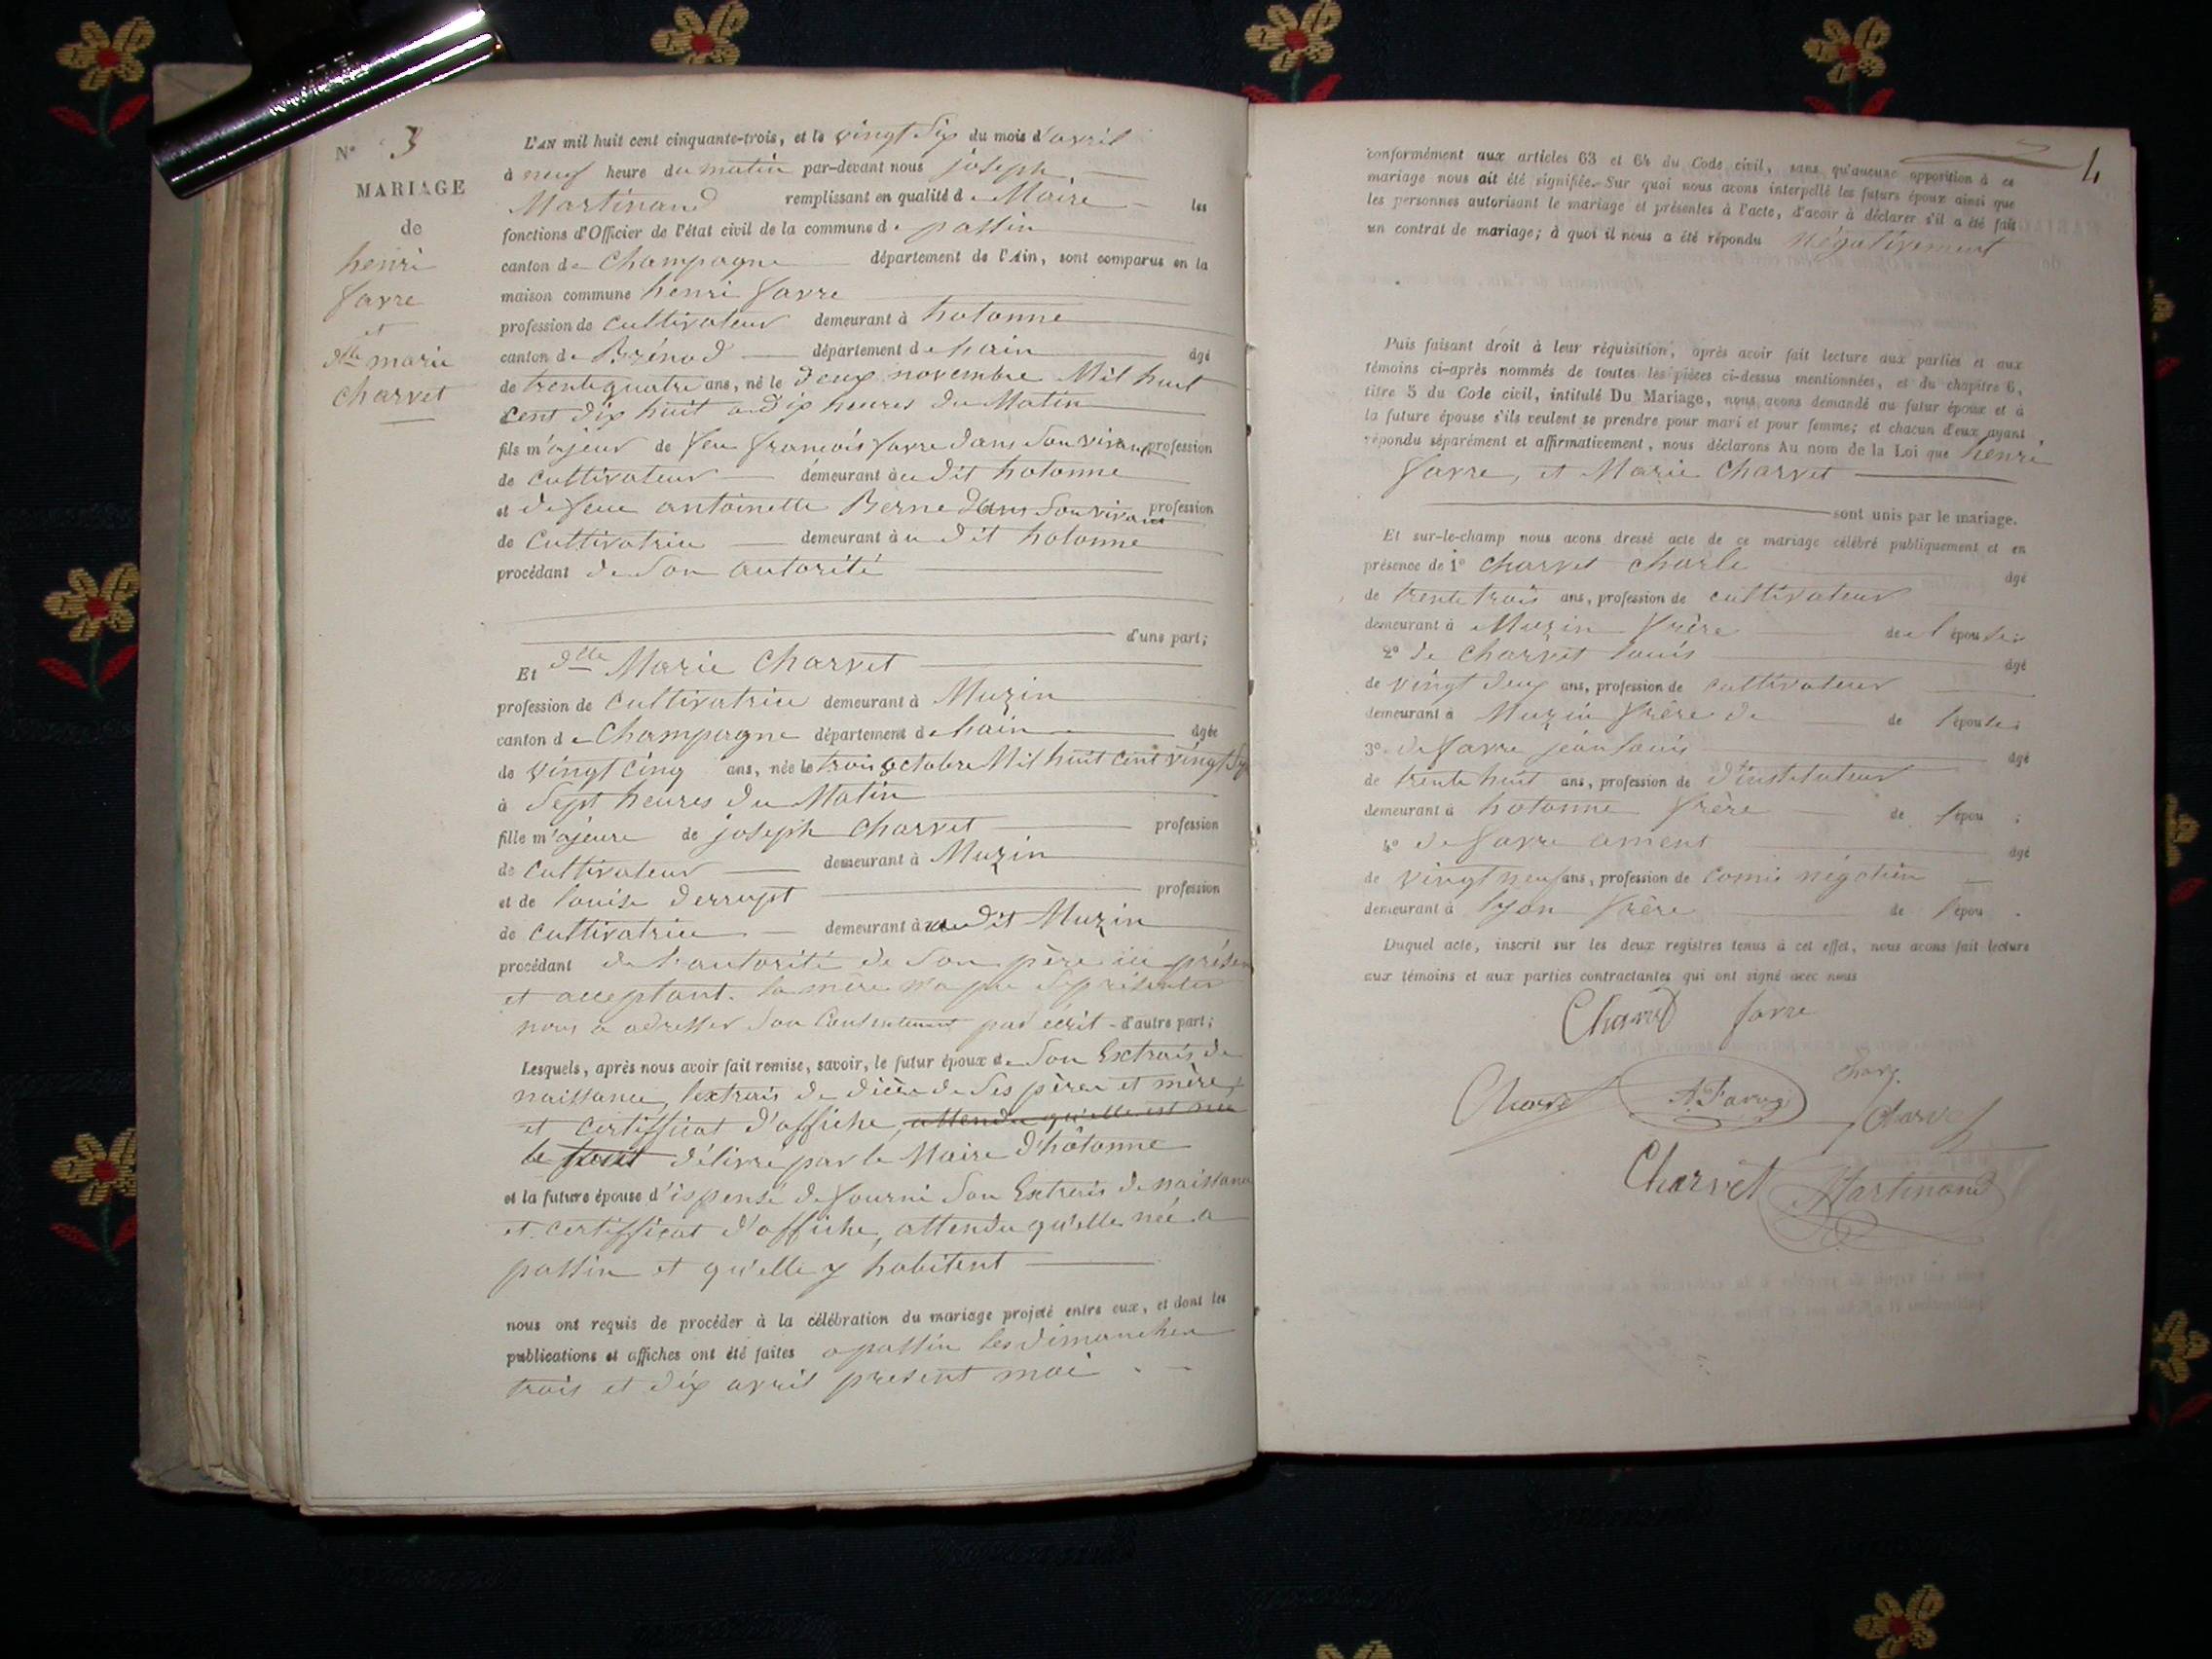 N° 3
MARIAGE
de
henri
favre
et
dlle marie
charvet
L'AN mil huit cent cinquante-trois, et le vingt Six du mois d'avril
à neuf heure du matin par-devant nous joseph
Martinand remplissant en qualité de Maire les
fonctions d'Officier de l'état civil de la commune de passin
canton de Champagne département de l'Ain, sont comparus en la
maison commune henri favre
profession de cultivateur demeurant à hotonne
canton de Brénod département de lain âgé
de trente quatre ans, né le deux novembre Mil huit
cent dix huit a dix heures du Matin
fils majeur de feu françois favre dans Son vivant profession
de cultivateur demeurant au dit hotonne
et de feue antoinette Berne dans Son vivant profession
de Cultivatrice demeurant au dit hotonne
procédant de Son autorité
d'une part;
Et dlle Marie Charvet
profession de Cultivatrice demeurant à Muzin
canton de Champagne département de lain âgée
de vingt cinq ans, née le trois octobre Mil huit cent vingt Sep
à Sept heures du Matin
fille majeure de joseph Charvet profession
de Cultivateur demeurant à Muzin
et de louise derrupt profession
de Cultivatrice demeurant à au dit Muzin
procédant de l'autorité de Son père ici présen
et acceptant. la mère n'a pu Se présenter
nous a adresser Son Consentement par ecrit - d'autre part;
Lesquels, après nous avoir fait remise, savoir, le futur époux de Son Extrais de
naissance, lextrais de décès de Ses père et mère
et certifficat d'affiche, attendu qu'elle est née
le tout délivré par le Maire d'hôtonne
et la future épouse d'ispensé de fourni Son Extrais de naissance
et certifficat d'affiche, attendu qu'elle née a
passin et qu'elle y habitent
nous ont requis de procéder à la célébration du mariage projeté entre eux, et dont les
publications et affiches ont été faites a passin les dimanches
trois et dix avril present moi
4
conformément aux articles 63 et 64 du Code civil, sans qu'aucune opposition à ce
mariage nous ait été signifiée. Sur quoi nous avons interpellé les futurs époux ainsi que
les personnes autorisant le mariage et présentes à l'acte, d'avoir à déclarer s'il a été fait
un contrat de mariage; à quoi il nous a été répondu négativement
Puis faisant droit à leur réquisition, après avoir fait lecture aux parties et aux
témoins ci-après nommés de toutes les pièces ci-dessus mentionnées, et du chapitre 6,
titre 5 du Code civil, intitulé Du Mariage, nous avons demandé au futur époux et à
la future épouse s'ils veulent se prendre pour mari et pour femme; et chacun d'eux ayant
répondu séparément et affirmativement, nous déclarons Au nom de la Loi que henri
favre, et Marie Charvet
sont unis par le mariage.
Et sur-le-champ nous avons dressé acte de ce mariage célébré publiquement et en
présence de 1° Charvet charle âgé
de trente trois ans, profession de cultivateur
demeurant à Muzin frère de l'épouse;
2° de Charvet louis âgé
de vingt deux ans, profession de cultivateur
demeurant à Muzin frère de de l'épouse;
3° de favre jean louis âgé
de trente huit ans, profession de d'instituteur
demeurant à hotonne frère de l'épou ;
4° de favre ament âgé
de vingt neuf ans, profession de comis négotien
demeurant à lyon frère de l'épou .
Duquel acte, inscrit sur les deux registres tenus à cet effet, nous avons fait lecture
aux témoins et aux parties contractantes qui ont signé avec nous
Charvet favre
Charvet A. Favre Charvet
Charvet Martinand